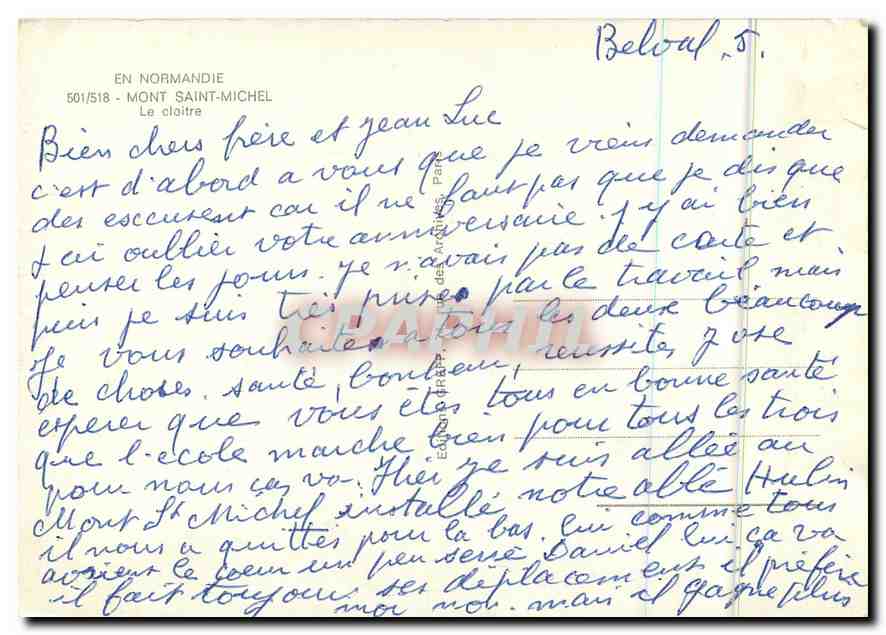 Belval, 5.
EN NORMANDIE
501/518 - MONT SAINT-MICHEL
Le cloitre
Bien chers frère et Jean Luc
c'est d'abord a vous que je viens demander
des excusent car il ne faut pas que je dis que
j'ai oublier votre anniversaire. J'y ai bien
penser les jours. Je n'avais pas de carte et
puis je suis très prise par le travail mais
Je vous souhaite a tous les deux beaucoup
de choses. santé, bonheur, réussites J'ose
esperer que vous êtes tous en bonne santé
que l'école marche bien pour tous les trois
pour nous ça va. Hier je suis allée au
Mont St Michel installé notre abbé Hulin
il nous a quittés pour la bas. lui comme tous
avaient le coeur un peu serré Daniel lui ça va
il fait toujours ses déplacements il préfère
moi non. mais il gagne plus
Editions GREFF, rue des Archives, Paris
CPAPHIL